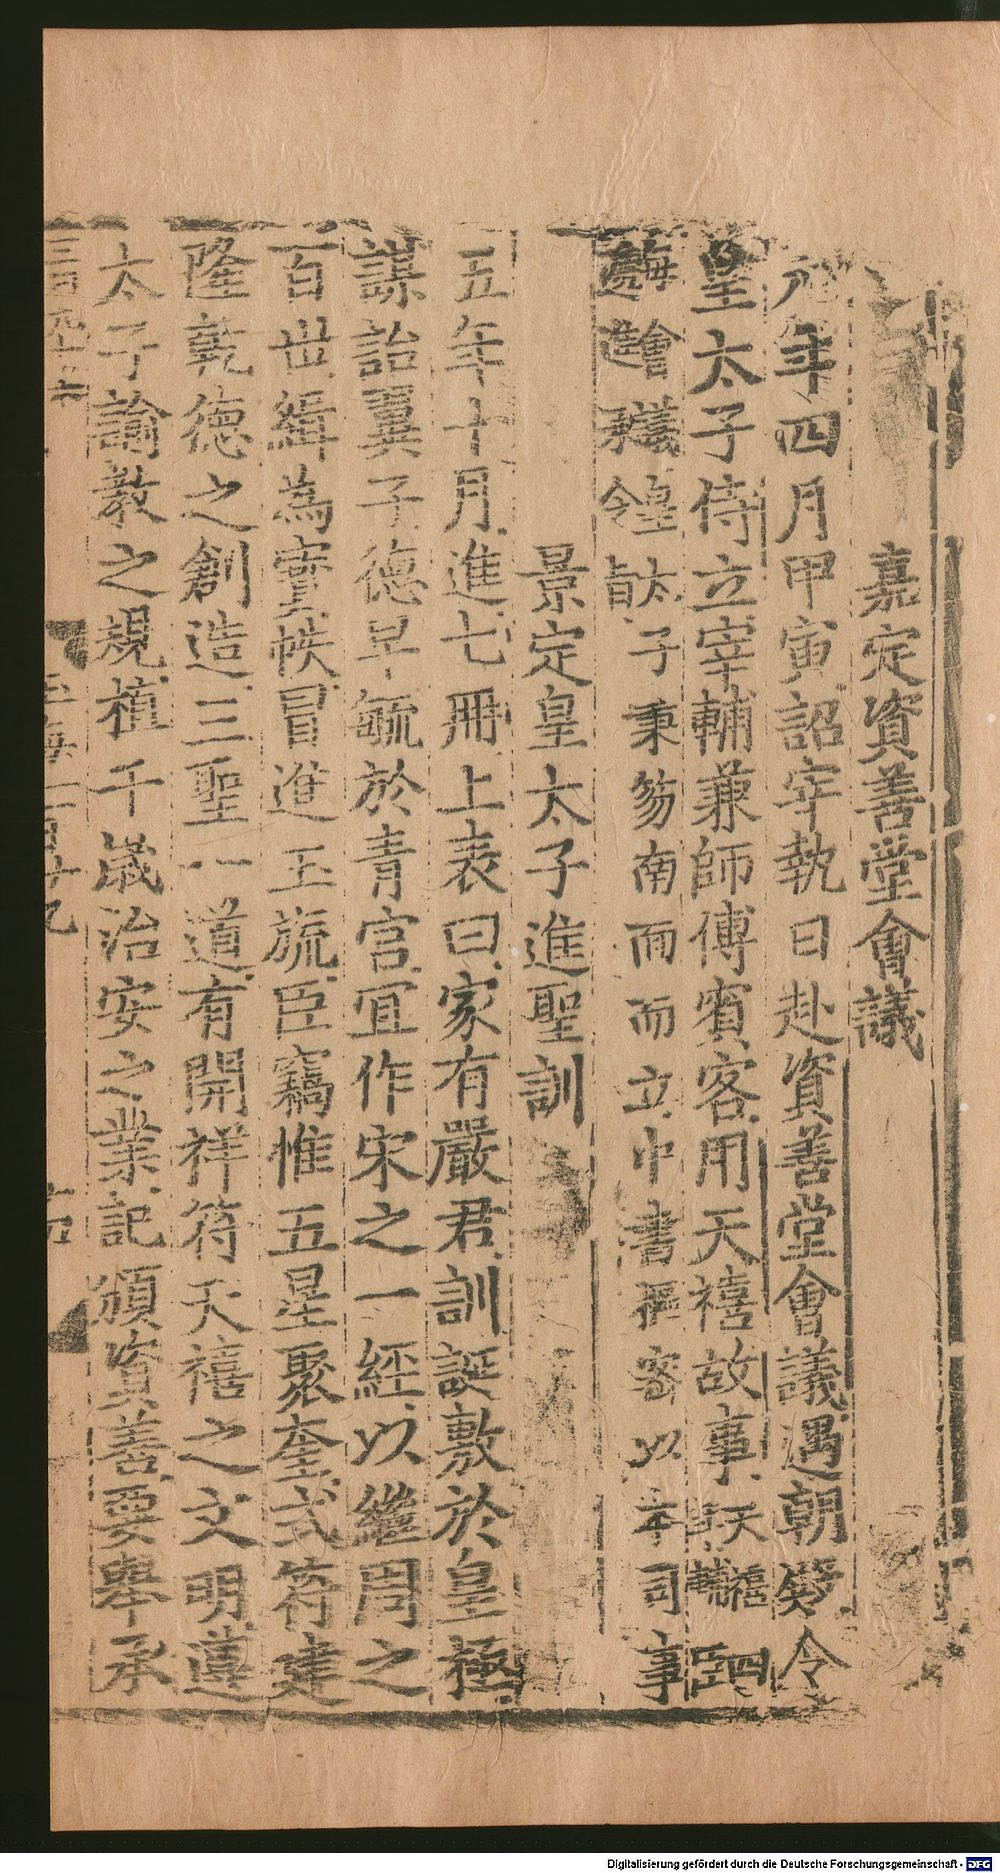 嘉定資善堂會議
年四月甲寅詔宰執日赴資善堂會議遇朝參令
皇太子侍立宰輔兼師傅賓客用天禧故事天禧四
輔臣
會議皇太子秉笏南面而立中書樞密以本司事
令旨
景定皇太子進聖訓
五年十月進七冊上表曰家有嚴君訓誕敷於皇極
謀詒翼子德早毓於青宮宜作宋之一經以繼周之
百世緝為寶帙冒進玉旒臣竊惟五星聚奎式符建
隆乾德之創造三聖一道有開祥符天禧之文明遵
太子諭教之規植千歲治安之業記頒資善要舉承
Digitalisierung gefördert durch die Deutsche Forschungsgemeinschaft - DFG